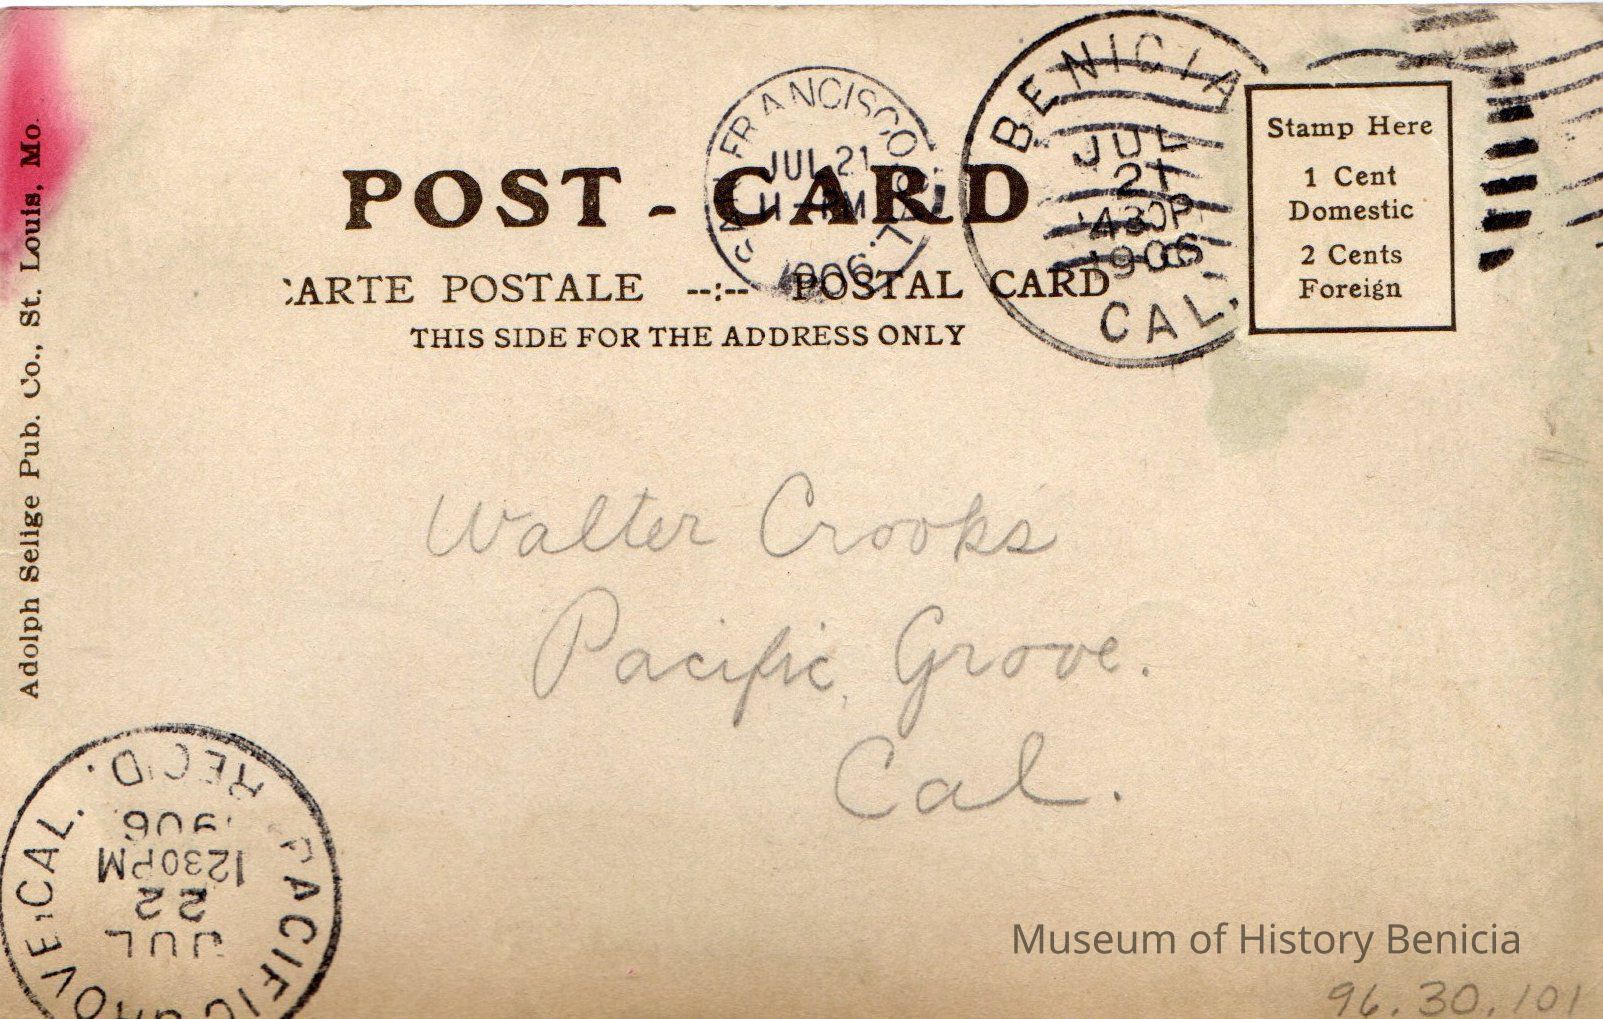 Adolph Selige Pub. Co., St. Louis, Mo.
POST-CARD
CARTE POSTALE --:-- POSTAL CARD
THIS SIDE FOR THE ADDRESS ONLY
SAN FRANCISCO, CAL.
JUL 21
1906
BENICIA
JUL
21
430P
1906
CAL.
Stamp Here
1 Cent
Domestic
2 Cents
Foreign
Walter Crooks
Pacific Grove.
Cal.
PACIFIC GROVE, CAL.
JUL
22
1230PM
1906
REC'D.
Museum of History Benicia
96.30.101